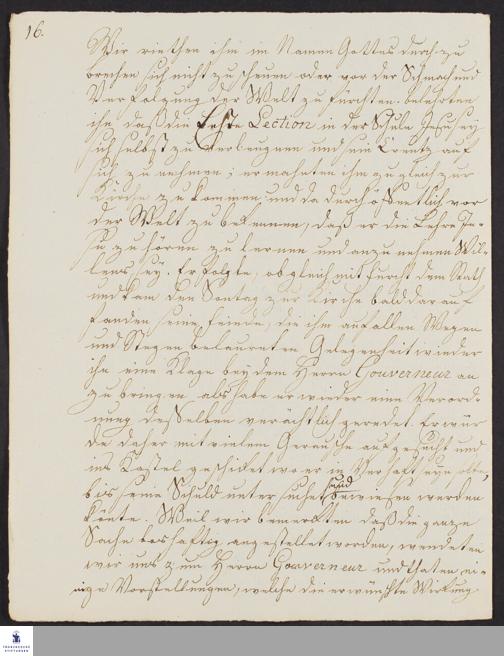 16.
Wir riethen ihm im Namen Gottes durch zu
brechen sich nicht zu scheuen oder vor der Schmach und
Verfolgung der Welt zu fürchten. belehrten
ihn daß die Erste Lection in der Schule Jesu sey
sich selbst zu verleugnen und sein Creutz auf
sich zu nehmen; ermahnten ihn zugleich zur
Kirche zu kommen und da durch öffentlich vor
der Welt zu bekennen, daß er die Lehre Je-
su zu hören zu lernen und anzunehmen Wil-
lens sey. Er folgte, obgleich mit Furcht dem Rath
und kam den Sontag zur Kirche bald darauf
fanden seine Feinde, die ihm auf allen Wegen
und Stegen belaureten Gelegenheit wieder
ihn eine Klage bey dem Herrn Gouverneur an
zu bringen als habe er wieder eine Verord-
nung desselben verächtlich geredet. Er wur
de daher mit vielem Geräusche aufgesucht und
ins Castel geschickt wo er in Verhaft seyn solte,
bis seine Schuld untersuchet und bewiesen werden
könte. Weil wir bemerkten daß die ganze
Sache boshaftig angestellet worden, wendeten
wir uns zum Herrn Gouverneur und thaten ei-
nige Vorstellungen, welche die erwünschte Wirkung
FRANCKESCHE
STIFTUNGEN